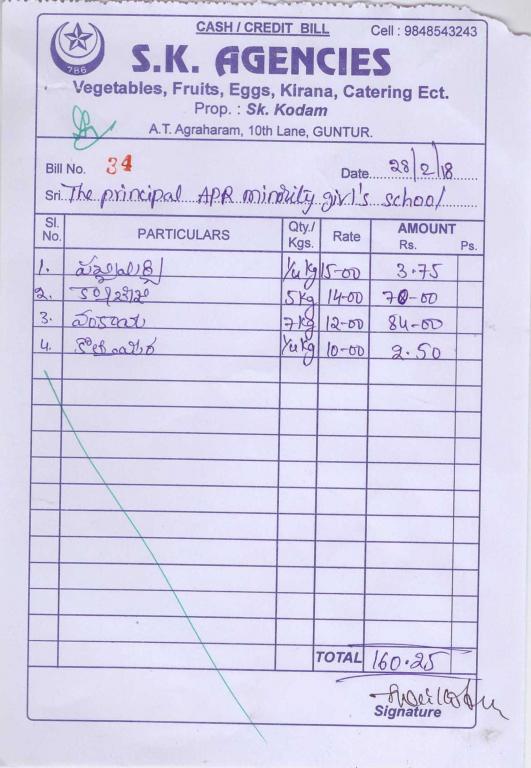 CASH / CREDIT BILL Cell : 9848543243
786
S.K. AGENCIES
Vegetables, Fruits, Eggs, Kirana, Catering Ect.
Prop. : Sk. Kodam
A.T. Agraharam, 10th Lane, GUNTUR.
Bill No. 34 Date 28/2/18
Sri. The principal APR minority girl's school
Sl. No. PARTICULARS Qty./ Kgs. Rate AMOUNT Rs. Ps.
1. 1/4 kg 15-00 3.75
2. 5kg 14-00 70-00
3. వంకాయ 7kg 12-00 84-00
4. 1/4 kg 10-00 2.50
TOTAL 160.25
Signature